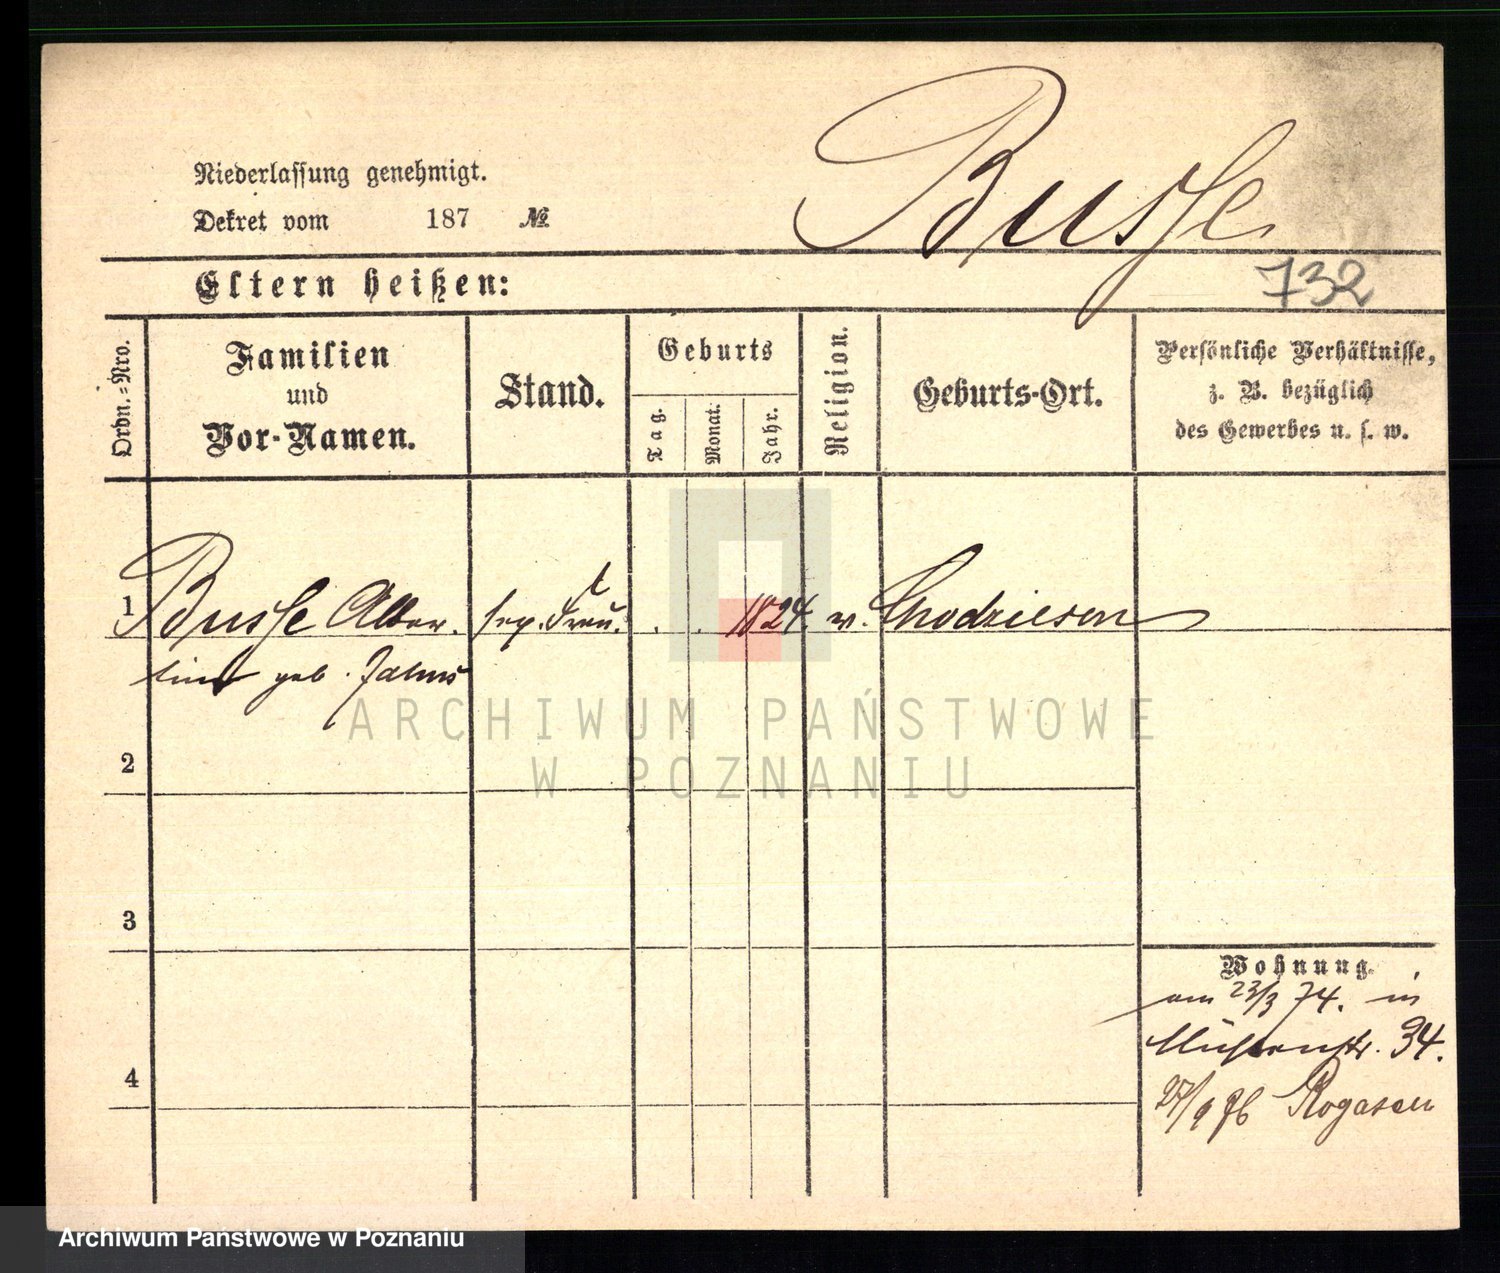 Busse
Niederlassung genehmigt.
Dekret vom 187 №
Eltern heißen:
732
Ordn.=Nro.
Familien
und
Vor-Namen.
Stand.
Geburts
Tag.
Monat.
Jahr.
Religion.
Geburts-Ort.
Persönliche Verhältnisse,
z. B. bezüglich
des Gewerbes u. s. w.
1 Busse Alber. sep. Frau. 1824. ev. Chodziesen
tine geb.
ARCHIWUM PAŃSTWOWE
W POZNANIU
2
3
4
Wohnung.
am 23/3 74. in
34.
27/9 Rogasen
Archiwum Państwowe w Poznaniu